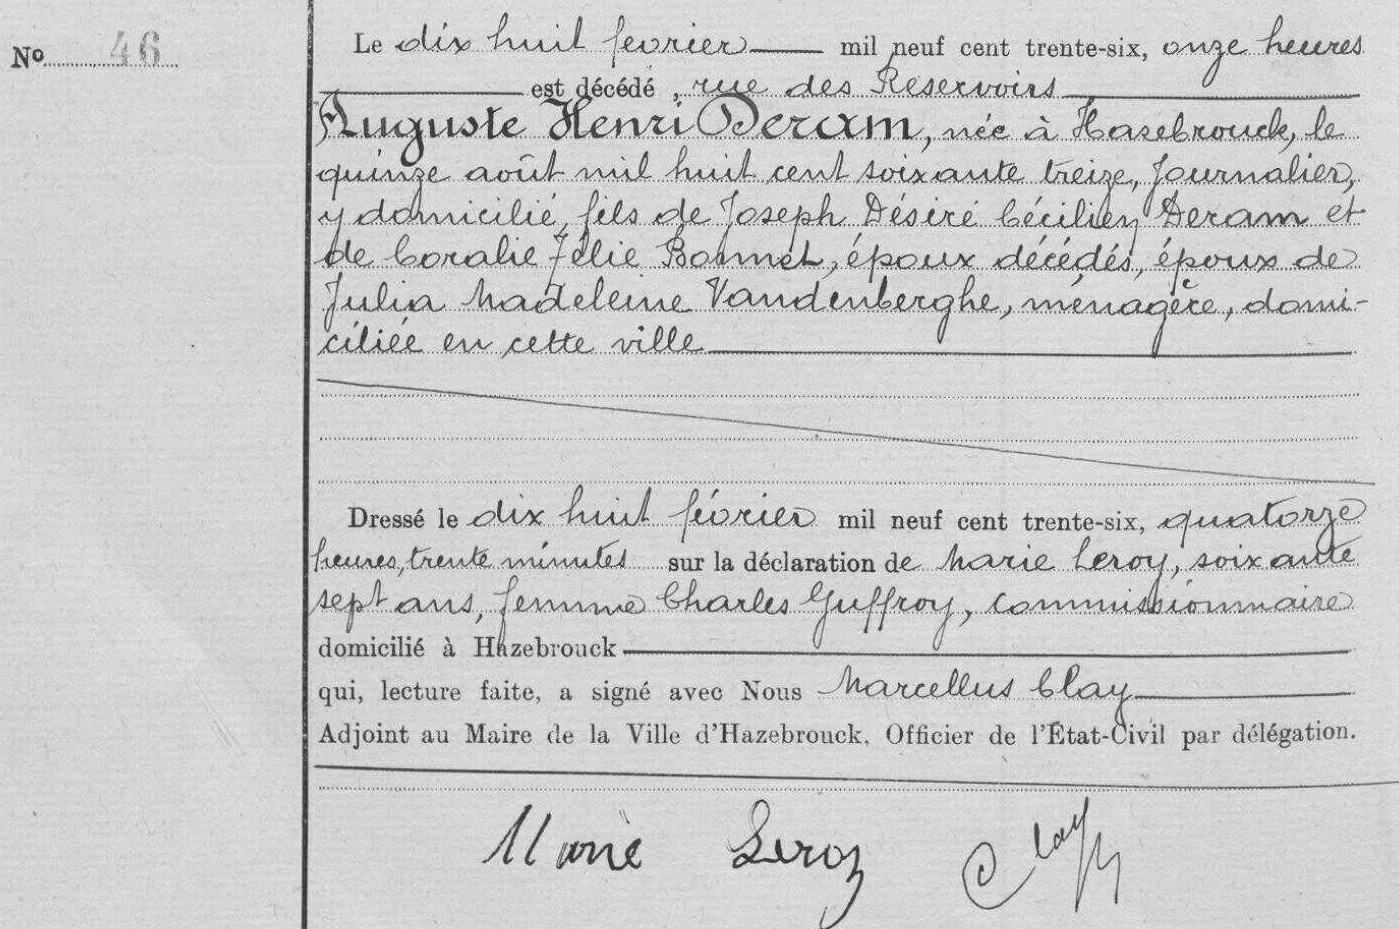 No 46
Le dix huit février mil neuf cent trente-six, onze heures
est décédé, rue des Réservoirs
Auguste Henri Deram, née à Hazebrouck, le
quinze août mil huit cent soixante treize, Journalier,
y domicilié, fils de Joseph Désiré Cécilien Deram et
de Coralie Félie Bonnet, époux décédés, époux de
Julia Madeleine Vandenberghe, ménagère, domi-
ciliée en cette ville
Dressé le dix huit février mil neuf cent trente-six, quatorze
heures, trente minutes sur la déclaration de Marie Leroy, soixante
sept ans, femme Charles Guffroy, commissionnaire
domicilié à Hazebrouck
qui, lecture faite, a signé avec Nous Marcellus Clay
Adjoint au Maire de la Ville d'Hazebrouck, Officier de l'État-Civil par délégation.
Marie Leroy Clay